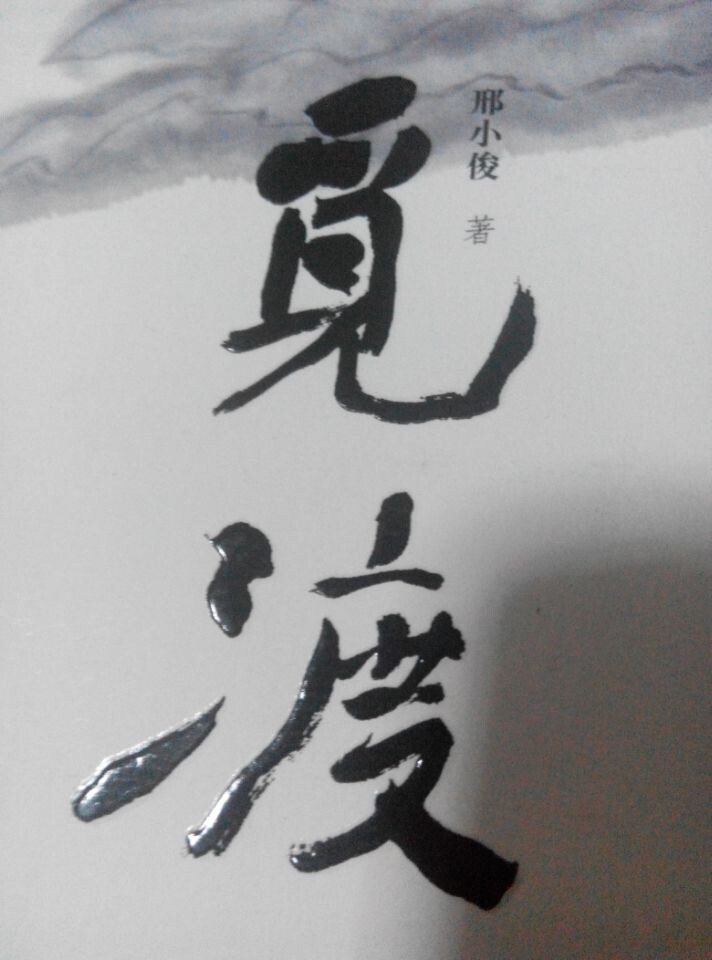 邢小俊 著
觅渡